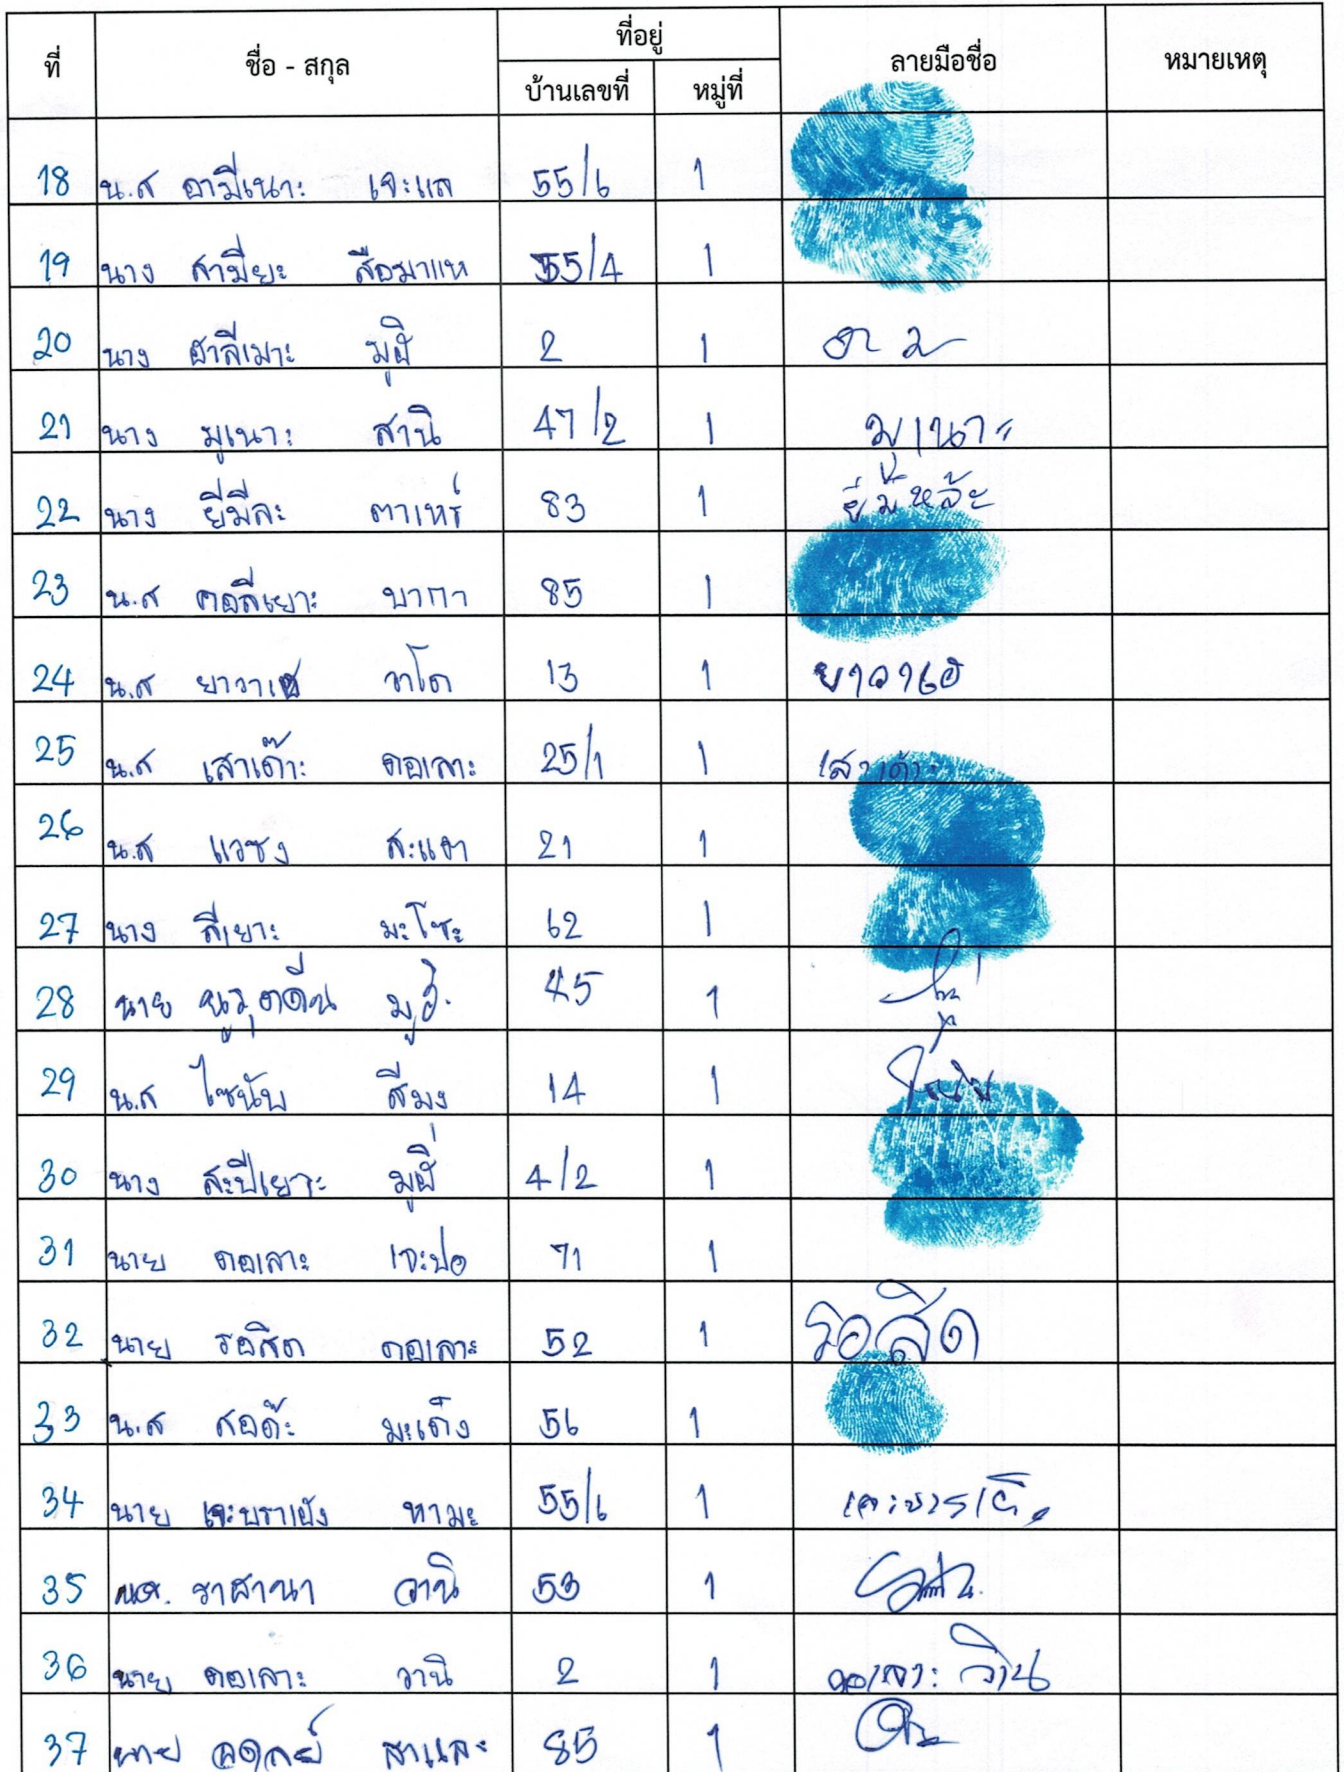 ที่ ชื่อ - สกุล ที่อยู่ ลายมือชื่อ หมายเหตุ
บ้านเลขที่ หมู่ที่
18 น.ส อามีเนาะ เจะแล 55/6 1
19 นาง สามียะ สือมาแห 55/4 1
20 นาง ฮาลีเมาะ มูฮิ 2 1
21 นาง มูเนาะ สานิ 47/2 1 มูเนาะ
22 นาง ยีมีละ ตาเหร์ 83 1 ยีมีหล๊ะ
23 น.ส คอลีเยาะ บากา 85 1
24 น.ส ยาวาเฮ วาโด 13 1 ยาวาเฮ
25 น.ส เสาเด๊าะ ดอเลาะ 25/1 1 เสาเด๊าะ
26 น.ส แวซง สะแต 21 1
27 นาง สีเยาะ มะโซะ 62 1
28 นาย นูรุดดีน มูฮิ 45 1
29 น.ส ไซนับ สีมง 14 1
30 นาง สะปีเยาะ มูฮิ 4/2 1
31 นาย ดอเลาะ เจะปอ 71 1
32 นาย รอสิด ดอเลาะ 52 1 รอสิด
33 น.ส สอด๊ะ มะเด็ง 56 1
34 นาย เจะบราเฮง หามะ 55/6 1
35 นส. ราฮานา วานิ 53 1
36 นาย ดอเลาะ วานิ 2 1 ดอเลาะ วานิ
37 นาย อดุลย์ สาและ 85 1